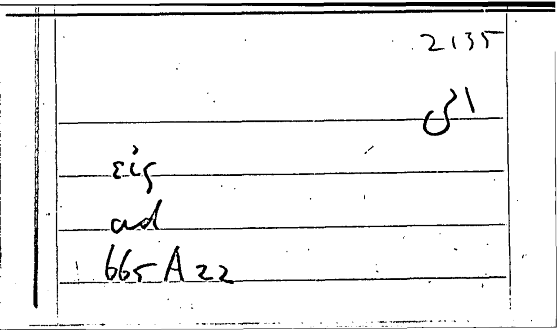 2135
الى
εἰς
ad
665 A 22